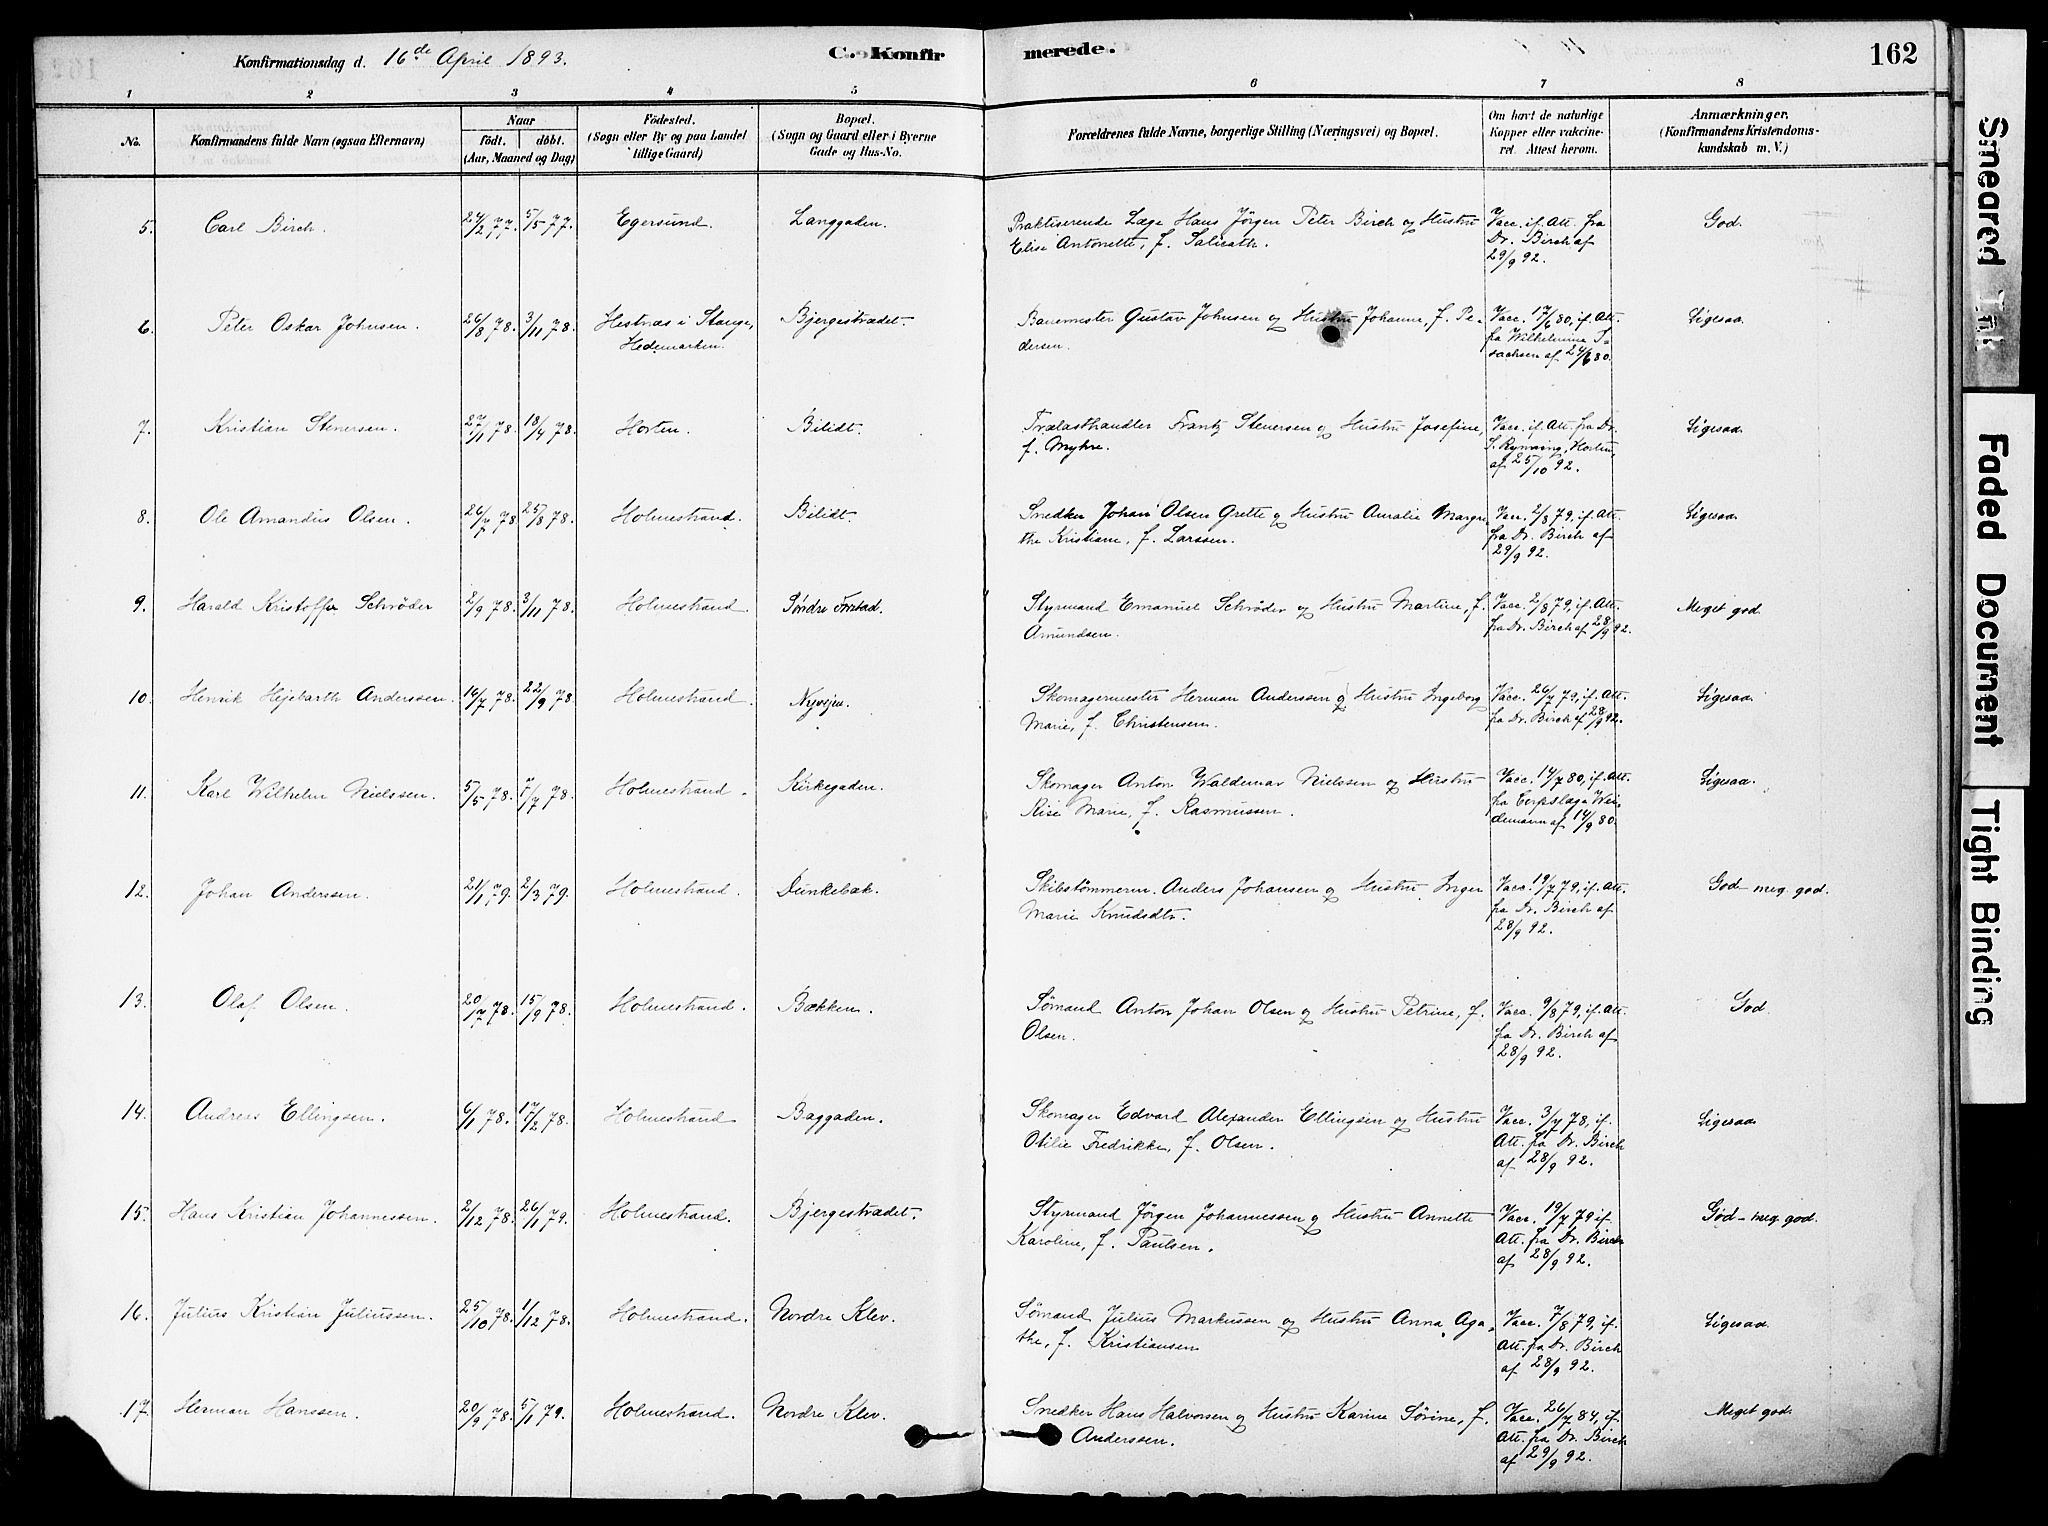 Konfirmationsdag d. 16de April 1893.
C. Konfirmerede.
162
1 2 3 4 5 6 7 8
No.
Konfirmandens fulde Navn (ogsaa Efternavn)
Naar
Födt. döbt.
(Aar, Maaned og Dag)
Födested.
(Sogn eller By og paa Landet
tillige Gaard)
Bopæl.
(Sogn og Gaard eller i Byerne
Gade og Hus-No.
Forældrenes fulde Navne, borgerlige Stilling (Næringsvei) og Bopæl.
Om havt de naturlige
Kopper eller vakcine-
ret. Attest herom.
Anmærkninger.
(Konfirmandens Kristendoms-
kundskab m. V.)
5. Carl Birch. 24/2 77. 5/5 77. Egersund. Langgaden. Praktiserende Læge Hans Jörgen Peter Birch og Hustru Vacc. if. Att. fra God.
Elise Antonette, f. Dr. Birch af
29/9 92.
6. Peter Oskar Johnsen. 26/8 78. 3/11 78. Hestnæs i Stange, Bjergestrædet. Banemester Gustav Johnsen og Hustru Johanne, f. Pe- Vacc. 17/6 80, if. Att. Ligesaa.
Hedemarken. dersen. fra Wilhelmine I-
sachsen af 24/6 80.
7. Kristian Stenersen. 27/1 78. 18/4 78. Horten. Bilidt. Trælasthandler Frantz Stenersen og Hustru Josefine, Vacc. if. Att. fra Dr. Ligesaa.
f. Myhre. Horten,
af 25/10 92.
8. Ole Amandus Olsen. 26/7 78. 25/8 78. Holmestrand. Bilidt. Snedker Johan Olsen Grette og Hustru Amalie Margre- Vacc. 2/8 79, if. Att. Ligesaa.
the Kristiane, f. Larssen. fra Dr. Birch af
29/9 92.
9. Harald Kristoffer Schrøder 2/9 78. 3/11 78. Holmestrand Søndre Forstad. Styrmand Emanuel Schrøder og Hustru Martine, f. Vacc. 2/8 79, if. Att. Meget god.
Amundsen. fra Dr. Birch af 28/9 92.
10. Henrik Hejebarth Anderssen. 16/7 78. 22/9 78. Holmestrand. Nyvejen. Skomagermester Herman Anderssen og Hustru Ingeborg Vacc. 26/7 79, if. Att. Ligesaa.
Marie, f. Christensen. fra Dr. Birch af 28/9 92.
11. Karl Wilhelm Nielssen. 5/5 78. 7/7 78. Holmestrand. Kirkegaden. Skomager Anton Waldemar Nielssen og Hustru Vacc. 14/7 80, if. Att. Ligesaa.
Marie, f. Rasmussen. fra Corpslæge Wei-
demann af 14/9 80.
12. Johan Anderssen. 21/1 79. 2/3 79. Holmestrand. Dunkebæk. Skibstömmerm. Anders Johansen og Hustru Inger Vacc. 19/7 79, if. Att. God - meg. god.
Marie Knudsdtr. fra Dr. Birch af
28/9 92.
13. Olaf Olsen. 20/7 78. 15/9 78. Holmestrand. Bækken. Sømand Anton Johan Olsen og Hustru Petrine, f. Vacc. 9/8 79, if. Att. God.
Olsen. fra Dr. Birch af
28/9 92.
14. Andreas Ellingsen. 6/1 78. 17/2 78. Holmestrand Baggaden. Skomager Edvard Alexander Ellingsen og Hustru Vacc. 3/7 78, if. Ligesaa.
Otilie Fredrikke, f. Olsen. Att. fra Dr. Birch
af 28/9 92.
15. Hans Kristian Johannessen. 2/12 78. 26/1 79. Holmestrand. Bjergestrædet. Styrmand Jörgen Johannessen og Hustru Annette Vacc. 19/7 79 if. God - meg. god.
Karoline, f. Paulsen. Att. fra Dr. Birch
af 28/9 92.
16. Julius Kristian Juliussen. 25/10 78. 1/12 78. Holmestrand. Nordre Klev. Sømand Julius Markussen og Hustru Anna Aga- Vacc. 7/8 79, if. Ligesaa.
the, f. Kristiansen Att. fra Dr. Birch
af 28/9 92.
17. Herman Hanssen. 20/9 78. 5/1 79. Holmestrand. Nordre Klev. Snedker Hans Halvorsen og Hustru Karine Sørine, f. Vacc. 26/7 84, if. Meget god.
Anderssen. Att. fra Dr. Birch
af 29/9 92.
Smeared Ink
Faded Document
Tight Binding